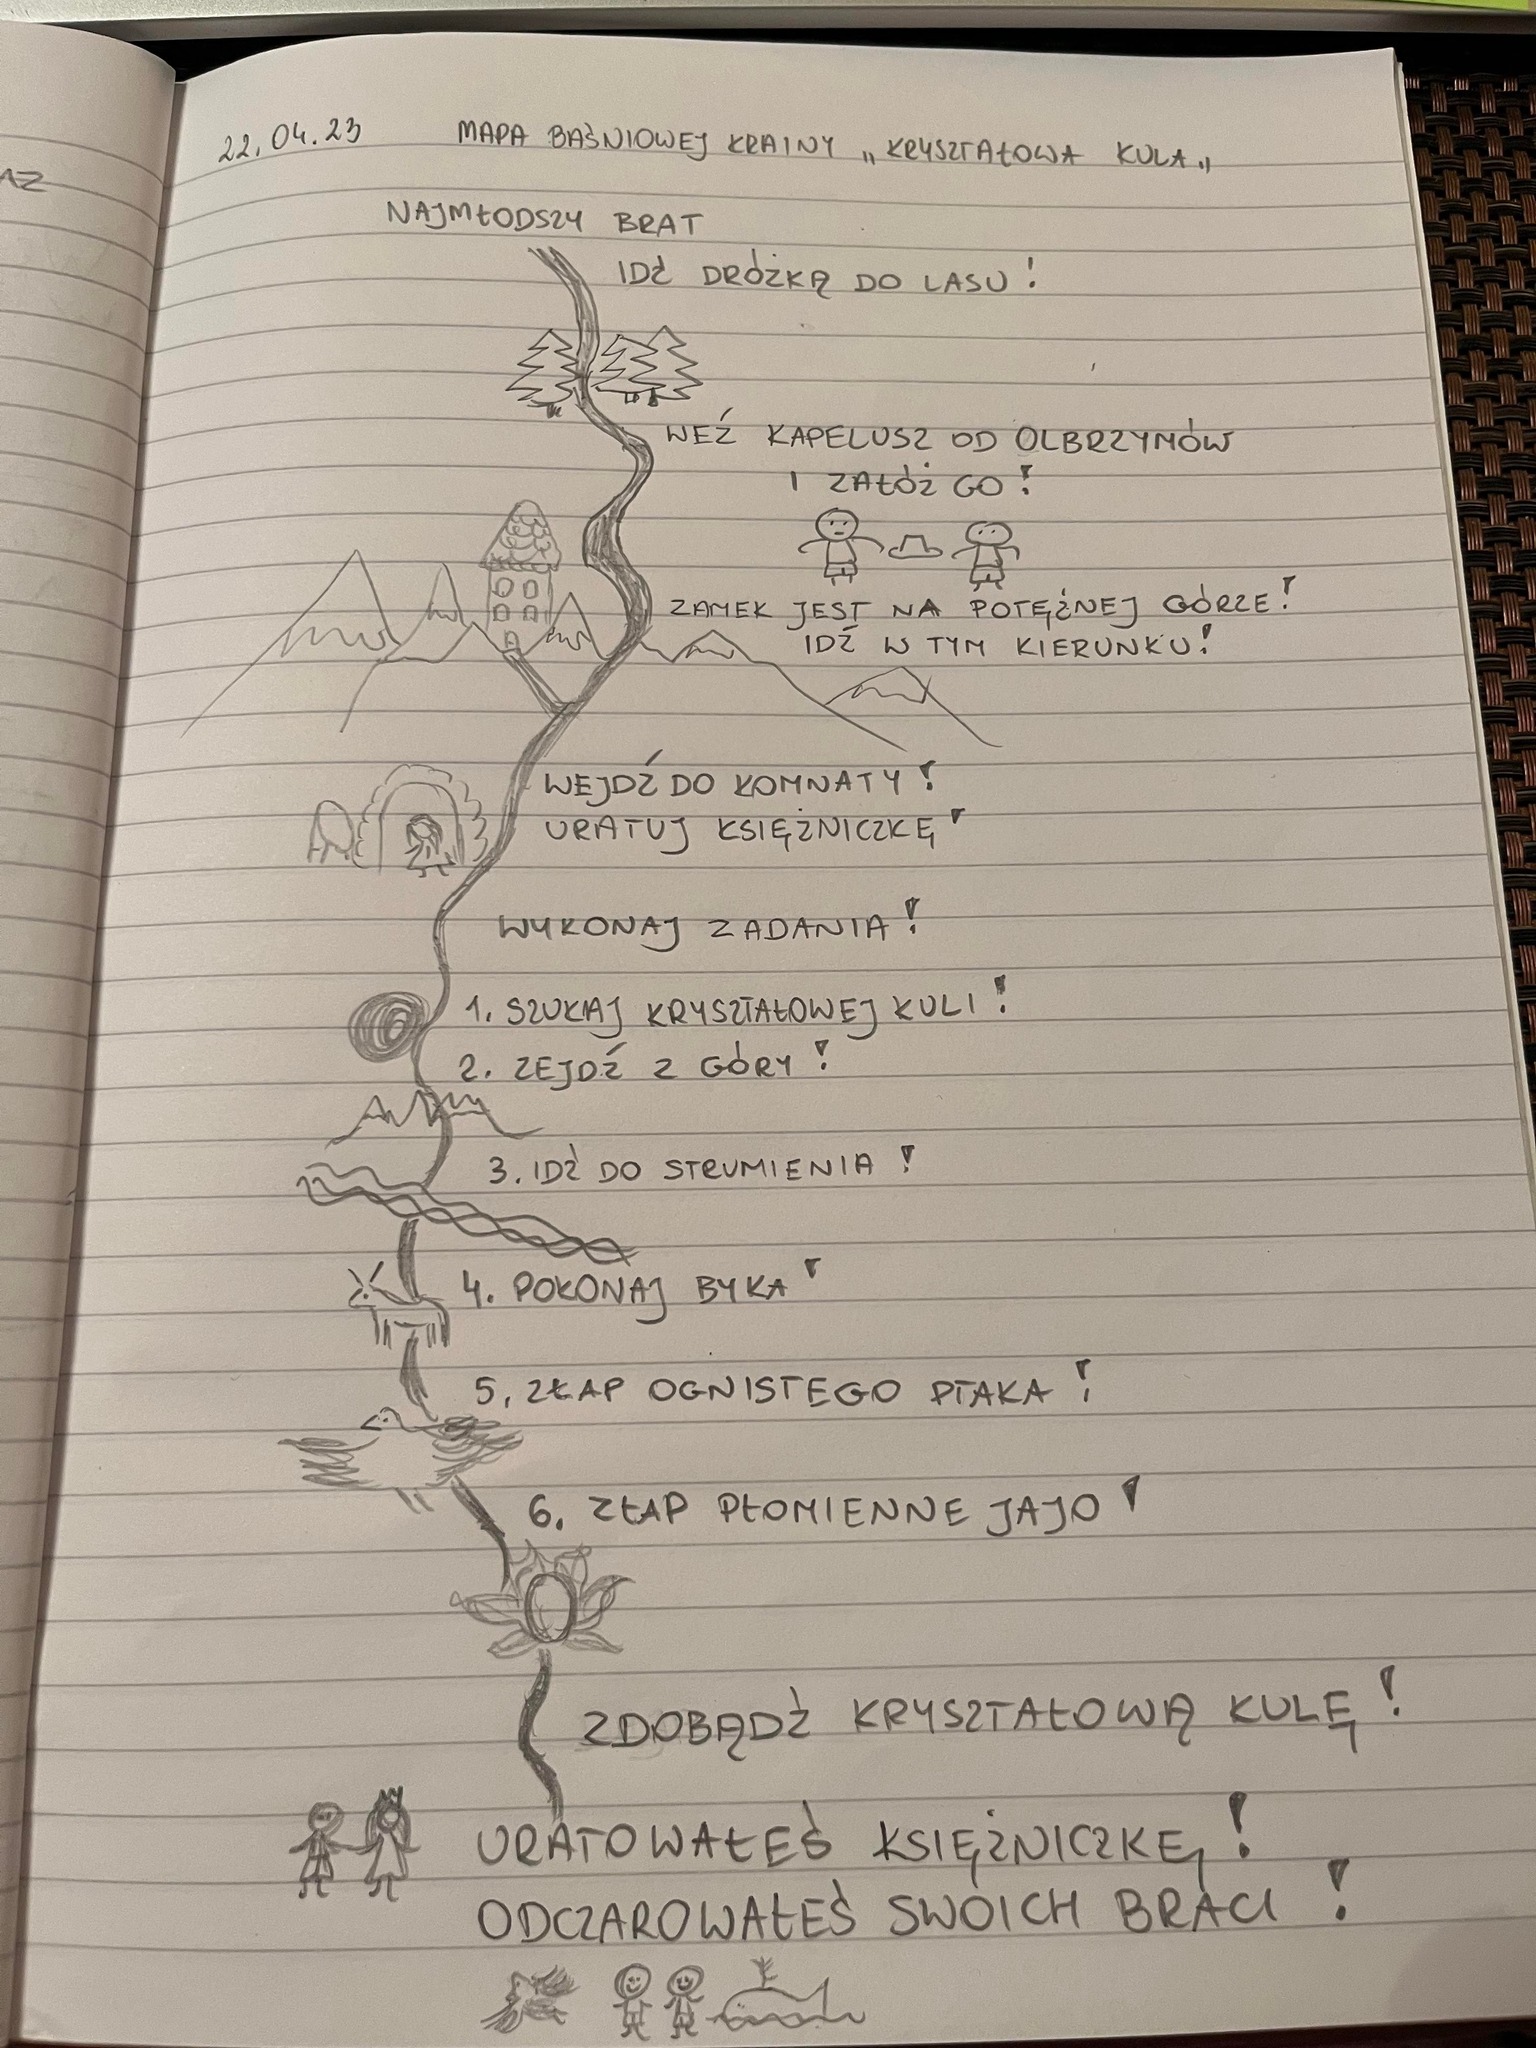 AZ
22.04.23 MAPA BAŚNIOWEJ KRAINY „KRYSZTAŁOWA KULA„
NAJMŁODSZY BRAT
IDŹ DRÓŻKĄ DO LASU!
WEŹ KAPELUSZ OD OLBRZYMÓW
I ZAŁÓŻ GO!
ZAMEK JEST NA POTĘŻNEJ GÓRZE!
IDŹ W TYM KIERUNKU!
WEJDŹ DO KOMNATY!
URATUJ KSIĘŻNICZKĘ!
WYKONAJ ZADANIA!
1. SZUKAJ KRYSZTAŁOWEJ KULI!
2. ZEJDŹ Z GÓRY!
3. IDŹ DO STRUMIENIA!
4. POKONAJ BYKA!
5. ZŁAP OGNISTEGO PTAKA!
6. ZŁAP PŁOMIENNE JAJO!
ZDOBĄDŹ KRYSZTAŁOWĄ KULĘ!
URATOWAŁEŚ KSIĘŻNICZKĘ!
ODCZAROWAŁEŚ SWOICH BRACI!